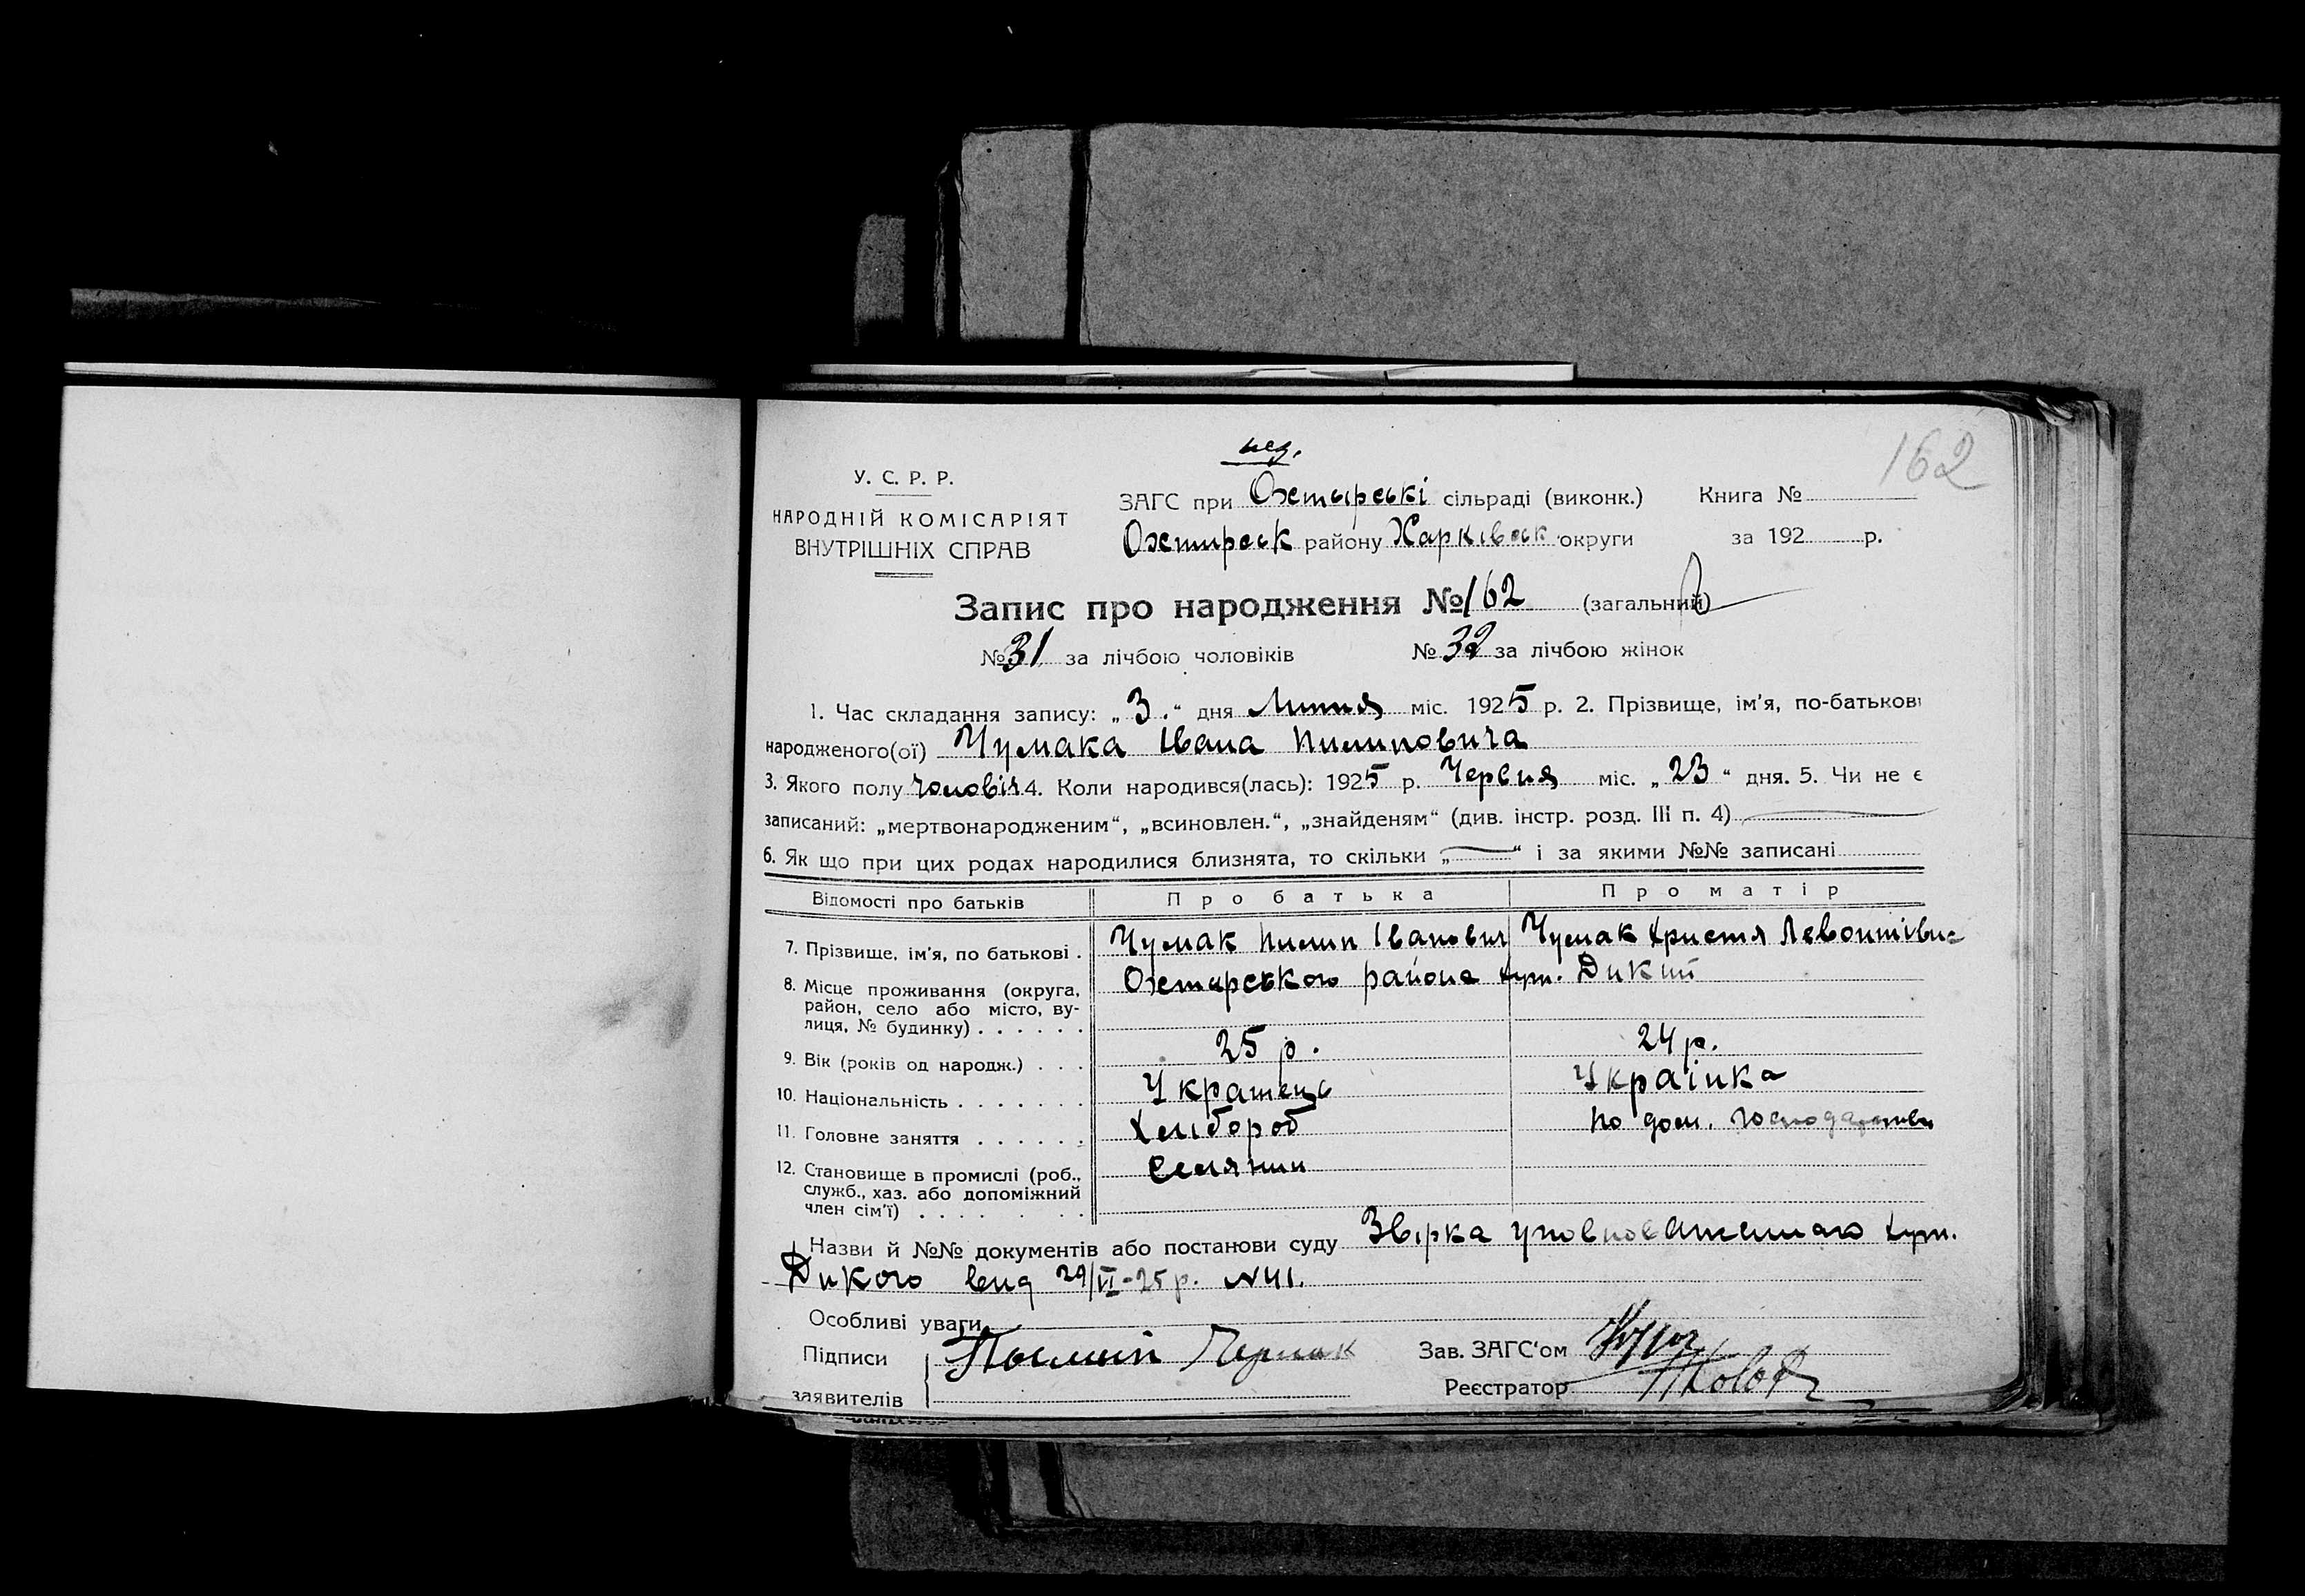 162
У. С. Р. Р.
НАРОДНІЙ КОМІСАРІЯТ
ВНУТРІШНІХ СПРАВ
ЗАГС при Охтырські сільраді (виконк.) Книга №
Охтирськ району Харківськ округи за 192 р.
Запис про народження № 162 (загальний)
№ 31 за лічбою чоловіків № 32 за лічбою жінок
1. Час складання запису: „ 3. “ дня Липня міс. 1925 р. 2. Прізвище, ім'я, по-батькові
народженого(ої) Чумака Івана Пилиповича
3. Якого полу чоловіч 4. Коли народився(лась): 1925 р. Червня міс. „ 23 “ дня. 5. Чи не є
записаний: „мертвонародженим“, „всиновлен.“, „знайденям“ (див. інстр. розд. III п. 4)
6. Як що при цих родах народилися близнята, то скільки „ “ і за якими №№ записані
Відомості про батьків Про батька Про матір
7. Прізвище, ім'я, по батькові . Чумак Пилип Іванович Чумак Христя Левонтівна
8. Місце проживання (округа, Охтирського района хут. Дикий
район, село або місто, ву-
лиця, № будинку) . . . . . .
9. Вік (років од народж.) . . . 25 р. 24 р.
10. Національність . . . . . . . Українець Українка
11. Головне заняття . . . . . . Хлібороб по дом. господарству
12. Становище в промислі (роб., Селянин
служб., хаз. або допоміжний
член сім'ї) . . . . . . .
Назви й №№ документів або постанови суду Звірка уповноваженного хут.
Дикого вид 29/VI-25 р. N 41.
Особливі уваги
Підписи Зав. ЗАГС'ом
заявителів Реєстратор